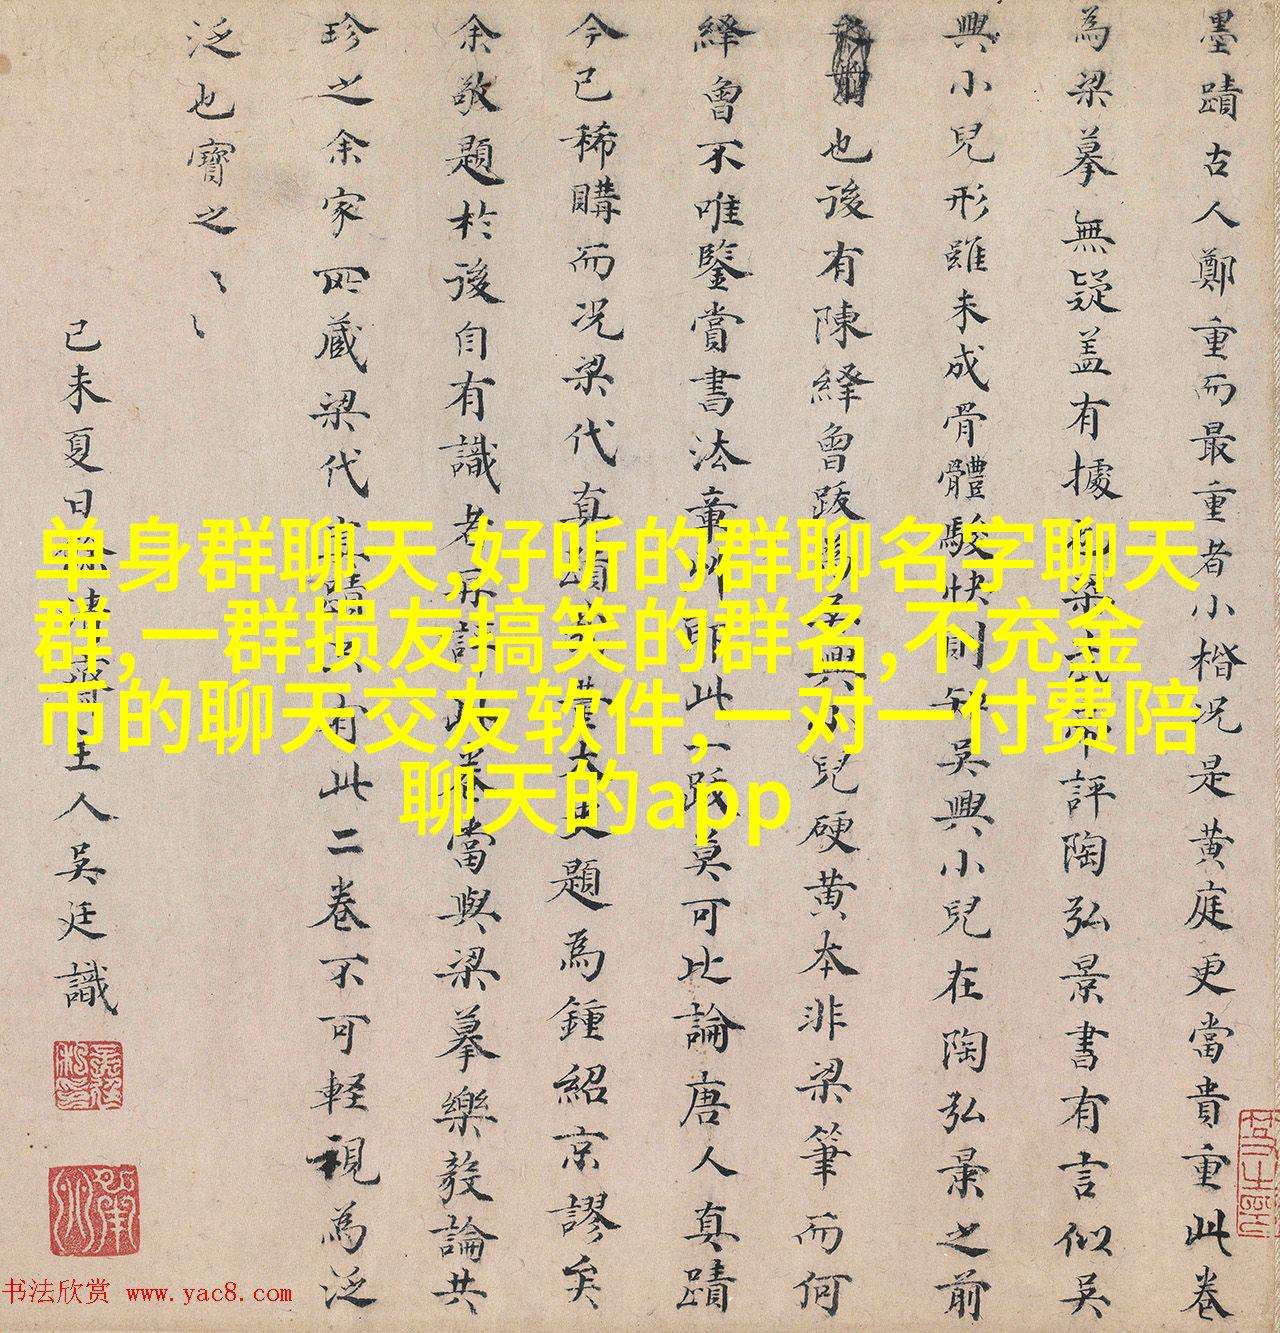 墨蹟古人鄭重而最重者小楷况是黄庭更當貴重此卷
為梁摹無疑盖有據梁武帝評陶弘景書有言似吳
興小兒形雖未成骨體駿快則知吳興小兒在陶弘景之前
也後有陳繹曾跋為吳興小兒硬黄本非梁筆而何
繹曾不唯鑒賞書法章艸即此一跋莫可比論唐人真蹟
今已稀購而况梁代真蹟題為鍾紹京謬矣
余敬題於後自有識者再評此卷當與梁摹樂毅論共
珍之余家所蔵梁代真蹟只有此二卷不可軽視為泛
泛也寶之〻〻
己未夏日餘清齋主人吳廷識
单身群聊天,好听的群聊名字聊天
群,一群损友搞笑的群名,不充金
币的聊天交友软件,一对一付费陪
聊天的app
书法欣赏 www.yac8.com